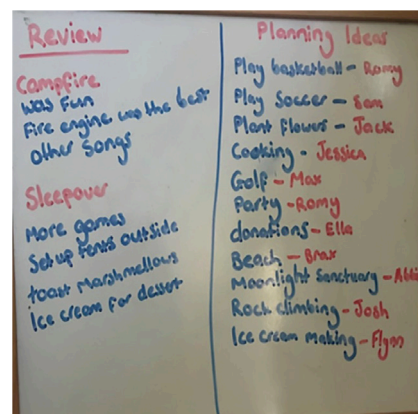 Review
Campfire
Was Fun
Fire engine was the best
Other Songs
Sleepover
More games
Set up tents outside
toast Marshmellows
Ice cream for dessert
Planning Ideas
Play basketball - Romy
Play Soccer - Sam
Plant flowers - Jack
Cooking - Jessica
Golf - Max
Party - Romy
donations - Ella
Beach - Brax
Moonlight Sanctuary -
Rock climbing - Josh
Ice cream making - Flynn